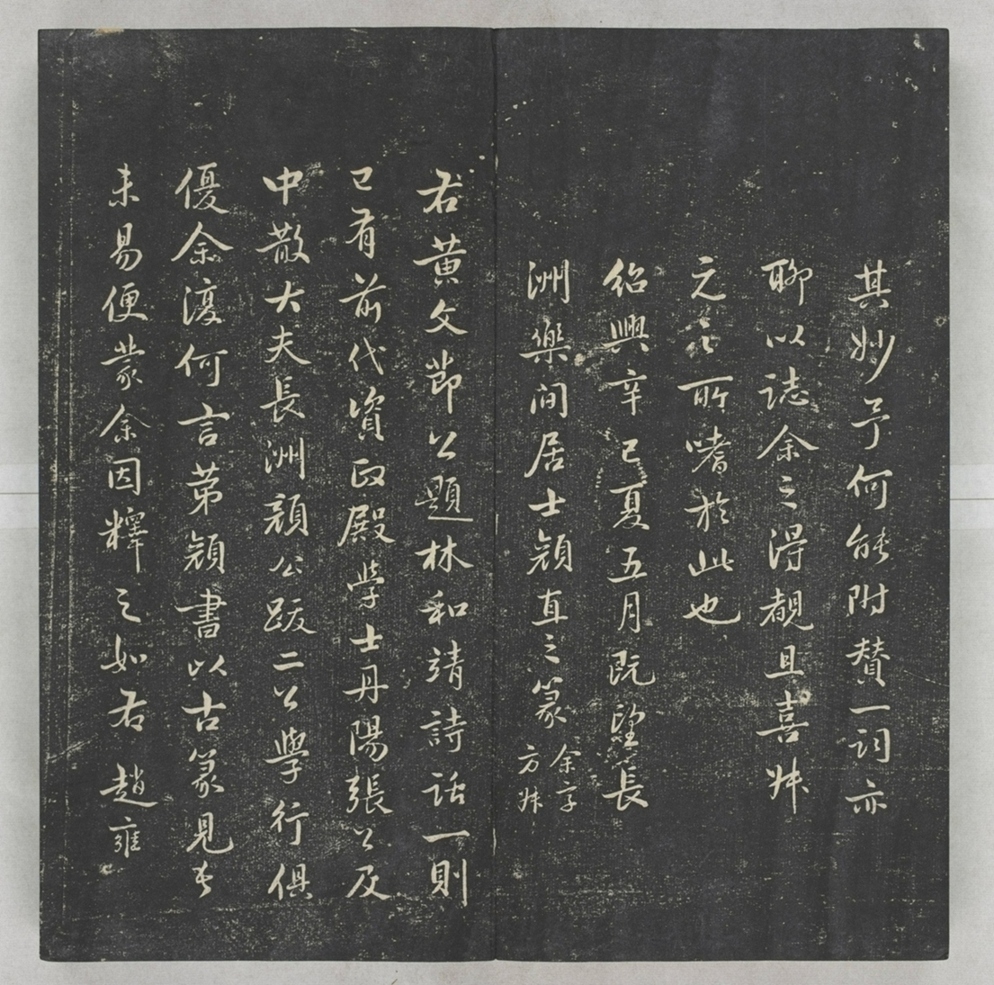 其妙予何能附贊一詞亦
聊以誌余之得觀且喜叔
元之所嗜於此也
紹興辛巳夏五月既望長
洲樂閒居士顏直之篆
余字
方叔
右黃文節公題林和靖詩話一則
已有前代資政殿學士丹陽張公及
中散大夫長洲顏公跋二公學行俱
優余復何言第顏書以古篆見者
未易便蒙余因釋之如右 趙雍